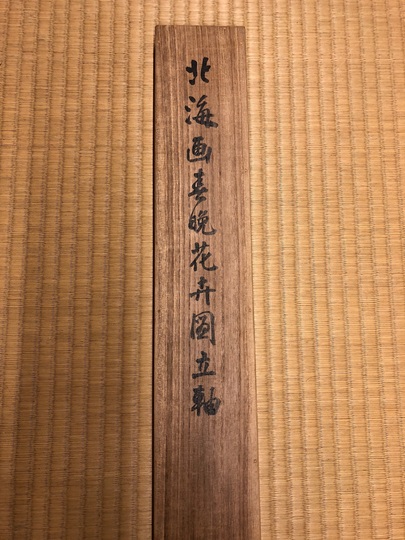 北海画春晩花卉圖立軸